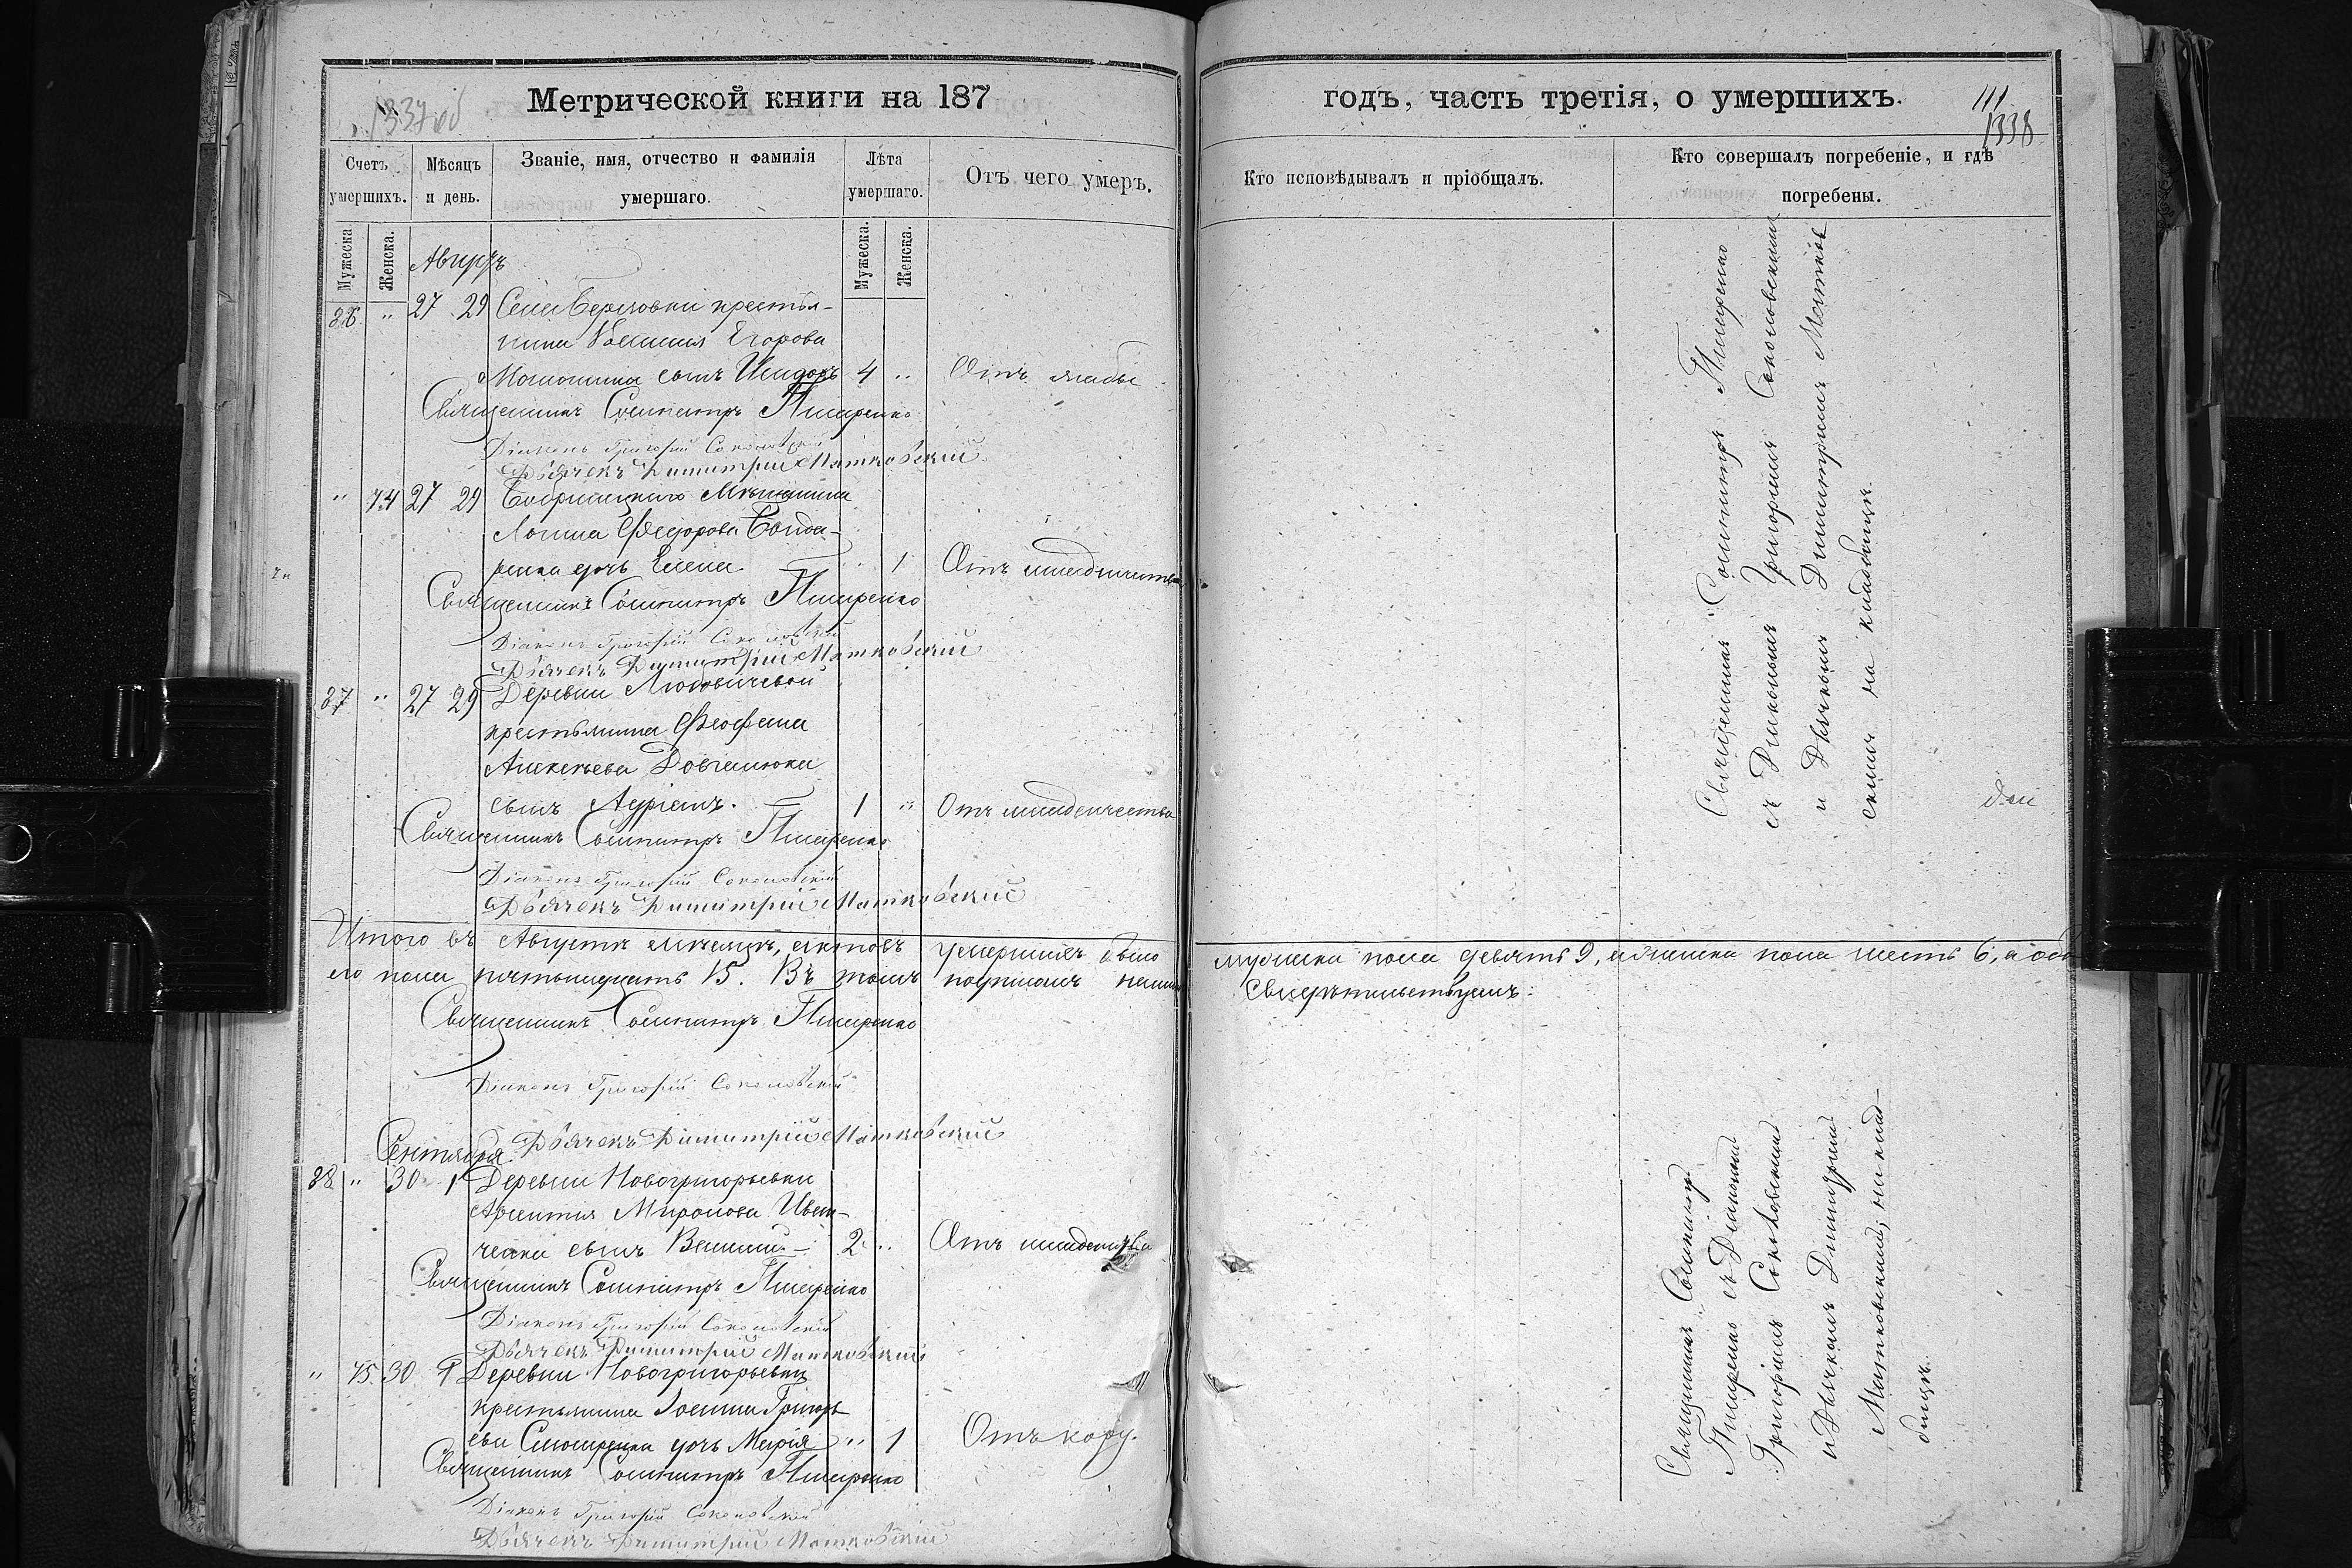 1337 об
Метрической книги на 187
годъ, часть третія, о умершихъ.
111
1338
Счетъ умершихъ.
Мѣсяцъ и день.
Званіе, имя, отчество и фамилія умершаго.
Лѣта умершаго.
Отъ чего умеръ.
Кто исповѣдывалъ и пріобщалъ.
Кто совершалъ погребеніе, и гдѣ погребены.
Мужеска.
Женска.
Мужеска.
Женска.
Августъ
86 " 27 29 Села крестья-
нина Егорова
сынъ Исидоръ 4 " Отъ жабы
Священникъ Сосипатръ Писаренко
Діаконъ Григорій Соколовскій
Дьячекъ Димитрій Матковскій
" 74 27 29 Бобринецкаго Мѣщанина
Логина Федорова Бонда-
ренка дочь Елена " 1 Отъ младенчества
Священникъ Сосипатръ Писаренко
Діаконъ Григорій Соколовскій
Дьячекъ Димитрій Матковскій
87 " 27 29 Деревни
крестьянина Феофана
Алексѣева Довганюка
сынъ Адріанъ. 1 " Отъ младенчества
Священникъ Сосипатръ Писаренко
Діаконъ Григорій Соколовскій
Дьячекъ Димитрій Матковскій
Священникъ Сосипатръ Писаренко
съ Діакономъ Григоріемъ Соколовскимъ
и Дьячкомъ Димитріемъ Матков
скимъ на кладбищѣ.
Итого въ Августѣ мѣсяцѣ, умершихъ было мужеска пола девять 9, женска пола шесть 6, а обо
его пола пятьнадцать 15. Въ томъ подписомъ нашимъ свидѣтельствуемъ:
Священникъ Сосипатръ Писаренко
Діаконъ Григорій Соколовскій
Дьячекъ Димитрій Матковскій
Сентября.
88 " 30 1 Деревни Новогригорьевки
Миронова
сынъ 2 " Отъ младенчества
Священникъ Сосипатръ Писаренко
Діаконъ Григорій Соколовскій
Дьячекъ Димитрій Матковскій
" 75 30 1 Деревни Новогригорьевки
крестьянина Іоанна Григорь
ева дочь Марія " 1 Отъ кору.
Священникъ Сосипатръ Писаренко
Діаконъ Григорій Соколовскій
Дьячекъ Димитрій Матковскій
Священникъ Сосипатръ
Писаренко съ Діакономъ
Григоріемъ Соколовскимъ
и Дьячкомъ Димитріемъ
Матковскимъ, на клад-
бищѣ.